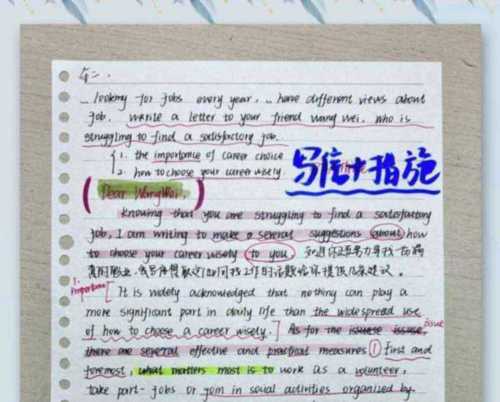 ...looking for jobs every year. ... have different views about
job. write a letter to your friend wang wei. who is
struggling to find a satisfactory job.
1. the importance of career choice
2. how to choose your career wisely
写信+措施
Dear WangWei,
knowing that you are struggling to find a satisfactory
job, I am writing to make a several suggestions about how
to choose your career wisely to you.
1. importance
It is widely acknowledged that nothing can play a
more significant part in daily life than the widespread use
of how to choose a career wisely. As for the issuse issue,
issue
there are several effective and practical measures ① first and
foremost, what matters most is to work as a volunteer,
take part-jobs or join in social activities organized by